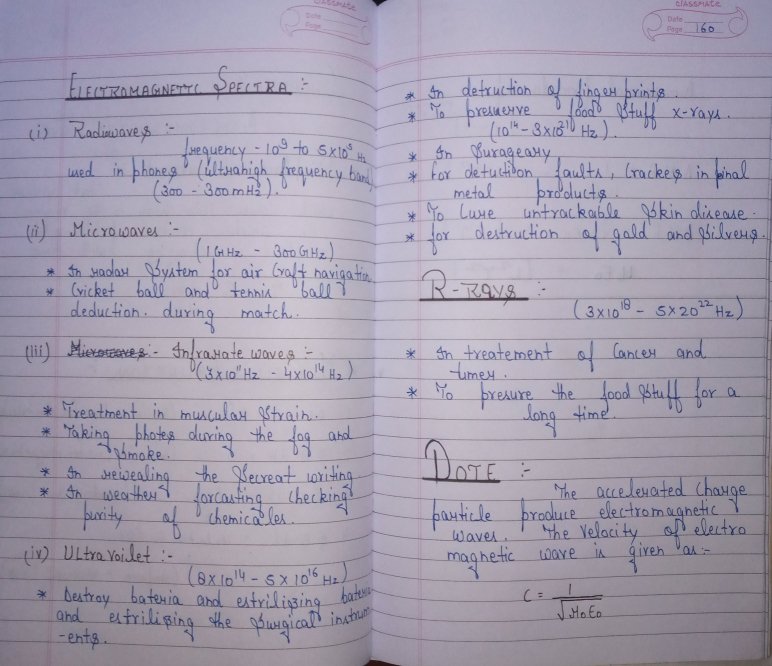 classmate
Date
Page
ELECTROMAGNETIC SPECTRA :-
(i) Radiowaves :-
frequency - 10⁹ to 5×10⁹ Hz
used in phones (ultrahigh frequency band,
(300 - 300mHz).
(ii) Microwaves :-
(1GHz - 300GHz)
* In radar System for air Craft navigation
* Cricket ball and tennis ball
deduction. during match.
(iii) Microwaves :- Infrarate waves :-
(3×10¹¹Hz - 4×10¹⁴Hz)
* Treatment in muscular Strain.
* Taking photes during the fog and
Smoke.
* In rewealing the Secreat writing
* In weather forcasting checking
purity of chemicales.
(iv) Ultravoilet :-
(8×10¹⁴ - 5×10¹⁶ Hz)
* Destroy bateria and estrilizing bateria
and estrilizing the Surgical instrum
-ents.
classmate
Date
Page 160
* In detruction of finger prints.
* To preserve food Stuff x-rays.
(10¹⁴ - 3×10²¹⁰ Hz).
* In Surageary
* for detuction faults, Crackes in final
metal products.
* To Cure untrackable Skin disease.
* for destruction of gold and Silvers.
R-RAYS :-
(3×10¹⁸ - 5×20²² Hz)
* In treatement of Cancer and
tumer.
* To presure the food Stuff for a
long time.
DOTE :-
The accelerated Charge
particle produce electromagnetic
waves. The Velocity of electro
magnetic wave is given as:-
C = 1
√μ₀ε₀